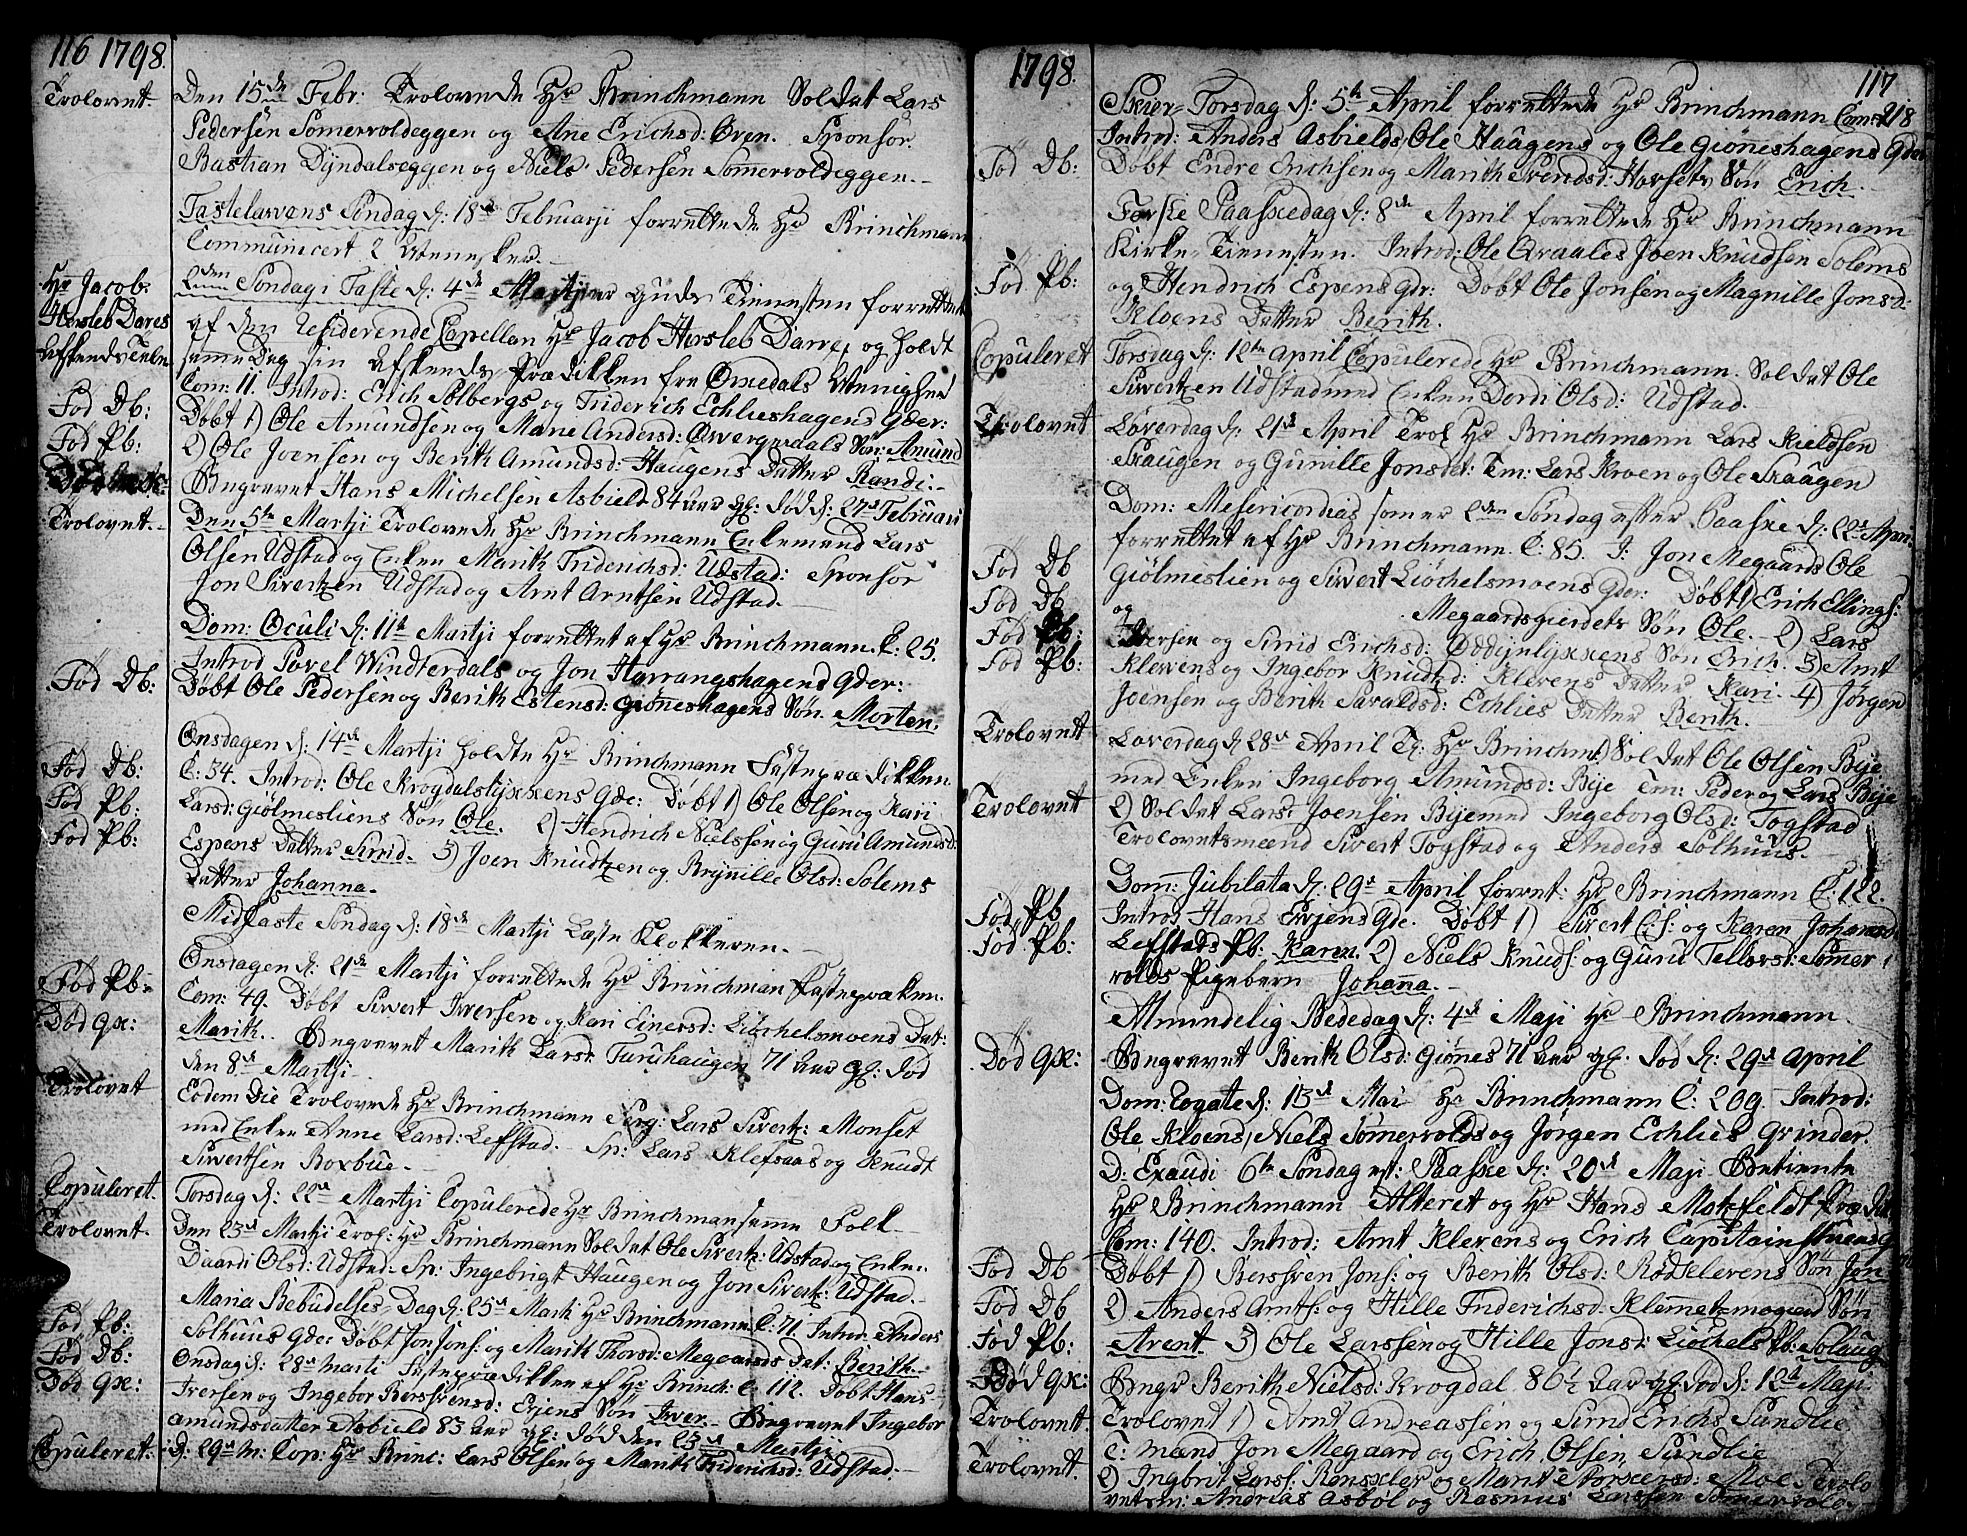 116 1798.
Trolovet
Den 15de Febr: Trolovede Hr Brinchmann Soldat Lars
Pedersen Somervoldeggen og Ane Erichsd: Øren. Sponsor.
Bastian Dÿndalseggen og Niels Pedersen Somervoldeggen.
Fastelavens Søndag d: 18de Februarji forrettede Hr Brinchmann
Communicert 2 Mennesker.
Hr Jacob
Hersleb Darres
Afskeeds Tale
2den Søndag i Faste d: 4de Martji er Guds Tienesten forrettet
af den residerende Capellan Hr Jacob Hersleb Darre, og holdt
samme Dag sin Afskeeds Prædikken fra Ømedals Menighed
Com: 11. Introd: Erich Solbergs og Friderich Echlieshagens Qder:
Fød Db:
Døbt 1) Ole Amundsen og Marie Andersd: Søn: Amund
Fød Pb:
2) Ole Joensen og Berith Amundsd: Haugens Datter Randi.
Begravet Hans Michelsen Asbield 84 aar gl: død d: 27de Februari
Trolovet
Den 5te Martji Trolovede Hr Brinchmann Enkemand Lars
Olsen Udstad og Enken Marith Friderichsd: Udstad: Sponsor
Jon Sivertzen Udstad og Arnt Arntsen Udstad.
Dom: Oculi d: 11te Martji forrettet af Hr Brinchmann. C: 25.
Introd Povel Windterdals og Jon Harrangshagens Qder:
Fød Db:
Døbt Ole Pedersen og Berith Estensd: Giøneshagens Søn Morten.
Onsdagen d: 14de Martji holdte Hr Brinchmann Fasteprædikken
C: 34. Introd: Ole Krogdalslÿkkens Qde: Døbt 1) Ole Olsen og Kari
Fød Db:
Fød Pb:
Fød Pb:
Larsd: Giølmesliens Søn Ole. 2) Hendrich Nielssen og Guri Amundsd:
Espens Datter Sirrid. 3) Joen Knudtzen og Brÿnille Olsd: Solems
Datter Johanna.
Midfaste Søndag d: 18de Martji Læste Klokkeren.
Onsdagen d: 21de Martji forrettede Hr Brinchman Fasteprækn.
Fød Pb:
Com: 49. Døbt Sivert Iversen og Kari Einersd: Liøchelsmoens Dat:
Død Qk:
Marith. Begravet Marith Larsd: Turihaugen 71 aar gl: død
den 8de Martji.
Trolovet
Eodem Die Trolovede Hr Brinchmann Serg: Lars Sivertz: Monset
med Enken Anne Larsd: Leffstad. Sp: Lars Klefsaas og Knudt
Sivertsen Boxbue.
Copuleret
Torsdag d: 22de Martji Copulerede Hr Brinchman samme Folk
Trolovet
Den 23de Martji Trol: Hr Brinchmann Soldat Ole Sivertz: Udstad og Enke
Daardi Olsd: Udstad. Sp: Ingebrigt Haugen og Jon Sivertz: Udstad.
Maria Bebudelses Dag d: 25de Marti Hr Brinchmann. C: 71. Introd Anders
Fød Pb:
Solhuus Qde: Døbt Jon Jons: og Marith Thorsd: Megaards Dat: Berith.
Fød Db:
Onsdag d: 28de Marti Fasteprædikken af Hr Brinch: C: 112. Døbt Hans
Iversen og Ingebor Berssvensd: Evjens Søn Iver. Begravet Ingebor
Død Qk:
Amundsdatter Asbield 83 aar gl: død den 23de Martji.
Copuleret:
D: 29de M: Cop: Hr Brinc: Lars Olsen og Marith Friderichsd: Udstad.
1798.
117
Skier-Torsdag d: 5te April forrettede Hr Brinchmann Com: 218
Introd: Anders Asbields, Ole Haagens og Ole Giøneshagens Qder
Fød Db:
Døbt Endre Erichsen og Marith Svendsd: Horsets Søn Erich.
Første Paaskedag d: 8de April forrettede Hr Brinchmann
Kirke-Tienesten. Introd: Ole Qvaales Joen Knudsen Solems
Fød Pb:
og Hendrich Espens Qdr: Døbt Ole Jonsen og Magnille Jonsd:
Kloens Datter Berith.
Copuleret
Torsdag d: 12te April Copulerede Hr Brinchmann Soldat Ole
Sivertzen Udstad med Enken Dordi Olsd: Udstad.
Trolovet
Løverdag d: 21de April Trol Hr Brinchmann Lars Kieldsen
Skaugen og Gunille Jonsdat: Tm: Lars Kroen og Ole Skaugen
Dom: Mesericordias som er 2den Søndag efter Paaske d: 22de April
forrettet af Hr Brinchmann. C: 85. I: Jon Megaards Ole
Fød Db
Giølmeslien og Sivert Liøchelsmoens Qder: Døbt 1) Erich Ellings:
Fød Db
og Megaardsgierdets Søn Ole. 2) Lars
Fød Pb:
Iversen og Sirrid Erichsd: Oddÿnlÿkkens Søn Erich. 3) Arnt
Fød Pb:
Klevens og Ingebor Knudtzd: Klevens Datter Kari. 4) Jørgen
Joensen og Berith Saraldsd: Echlies Datter Berith.
Trolovet
Løverdag d 28de April T: Hr Brinchm 1) Soldat Ole Olsen Bÿe
med Enken Ingeborg Amundsd: Bÿe Tm: Peder og Lars Bÿe
Trolovet
2) Soldat Lars Joensen Bÿe med Ingeborg Olsd: Togstad
Trolovetsmænd Sivert Togstad og Anders Solhuus.
Dom: Jubilata d: 29de April forret: Hr Brinchmann C: 122.
Fød Pb
Introd Hans Evjens Qde. Døbt 1) Sivert og Karen Johansd
Fød Pb:
Leffstads Pb: Karen. 2) Niels Knuds: og Guru Tellovsd: Somer
volds Pigebarn Johanna.
Almindelig Bededag d: 4de Maji Hr Brinchmann
Død Qk:
Begravet Berith Olsd: Giønes 71 aar gl: død d: 29de April
Dom: Rogate d: 13de Mai Hr Brinchmann C: 209. Introd:
Ole Kloens, Niels Somervolds og Jørgen Echlies Qvinder.
D: Exaudi 6te Søndag eft: Paaske d: 20de Maji Betiente
Hr Brinchmann Alteret og Hr Hans Motzfeldt Prædik
Com: 140. Introd: Arnt Klevens og Erich Capitainstuens Q
Fød Db
Døbt 1) Berssven Jons: og Berith Olsd: Rødsklevens Søn Jon
Fød Db
2) Anders Arnts: og Hille Friderichsd: Klemetzmoens Søn
Fød Pb:
Arent. 3) Ole Larssen og Hille Jonsd: Liøchels Pb: Solaug
Død Qk:
Begr Berith Nielsd: Krogdal 86½ aar gl: død d: 12te Maji
Trolovet
Trolovet 1) Arnt Andreassen og Sirrid Erichs Sundlie
T: mænd Jon Megaard og Erich Olsen Sundlie
Trolovet
2) Ingbrit Lars: og Marit Moe Trolo
vetsm: Andreas Asbøl og Rasmus Larssen Somervold